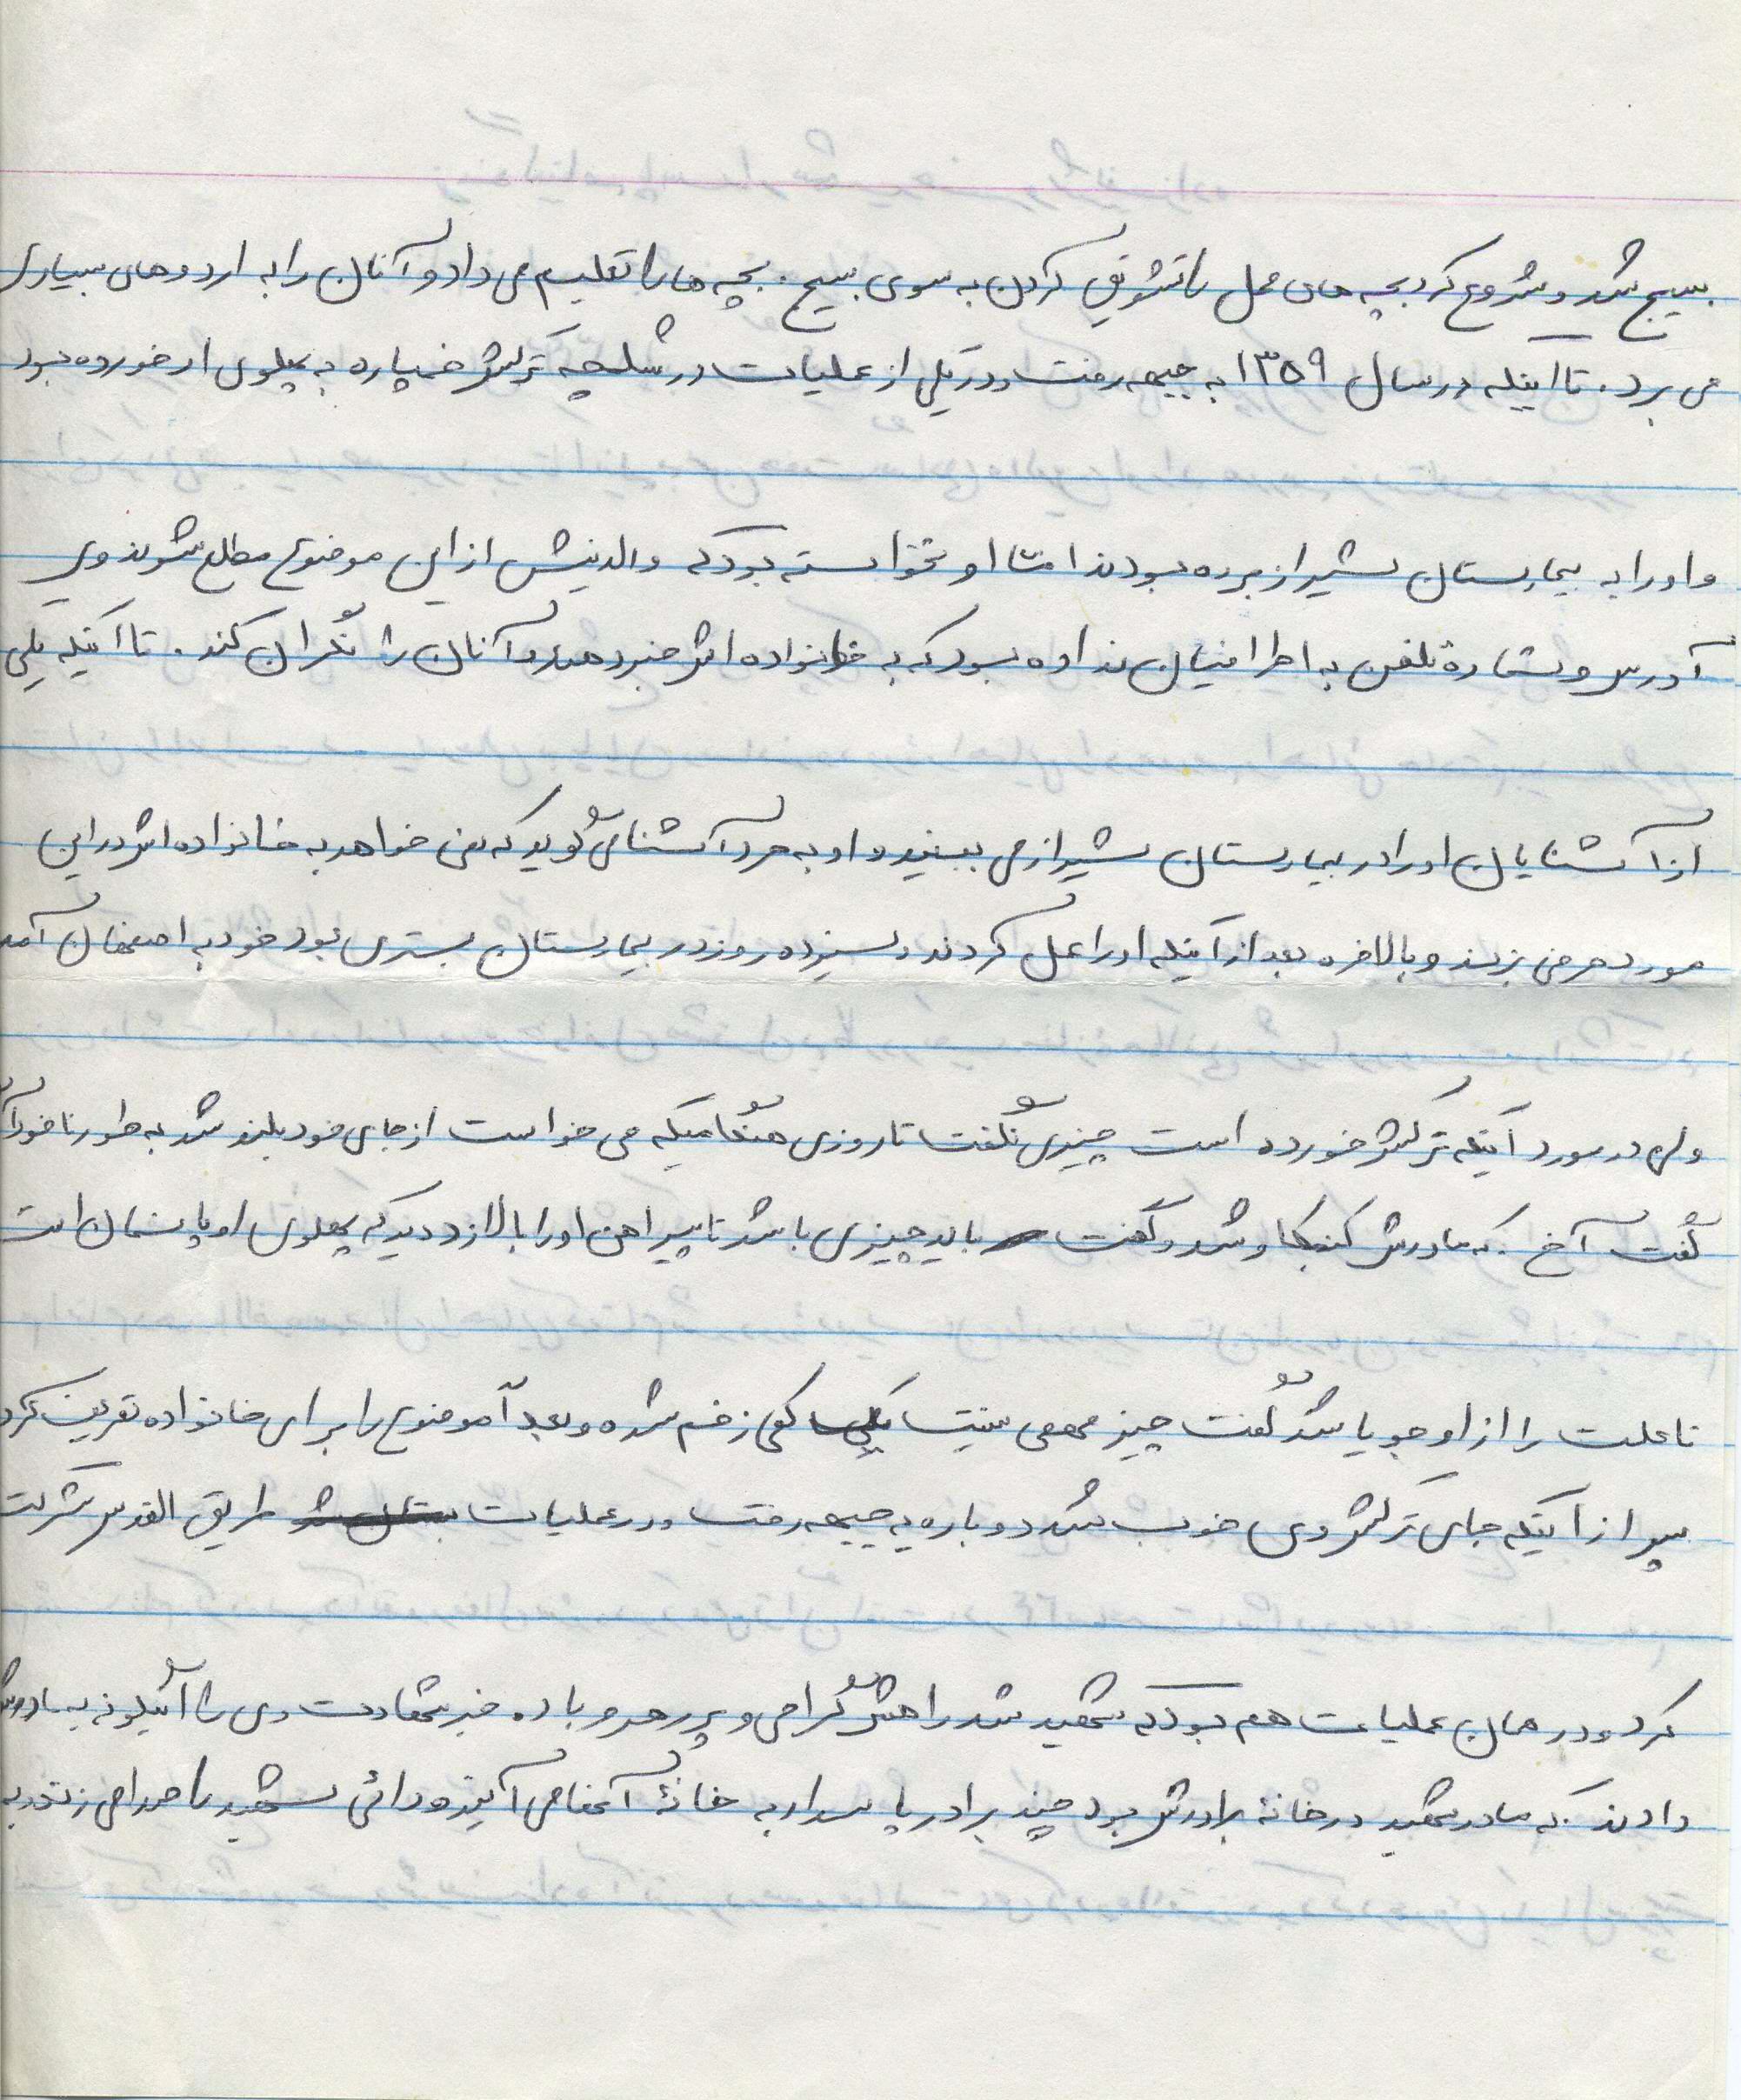 بسیج شد و شروع کرد بچه های محل را تشویق کردن به سوی بسیج. بچه ها را تعلیم می داد و آنان را به اردوهای بسیاری
می برد. تا اینکه در سال ۱۳۵۹ به جبهه رفت و در یکی از عملیات در شلمچه ترکش خمپاره به پهلوی او خورده بود
و او را به بیمارستان شیراز برده بودند امّا او نخواسته بود که والدینش از این موضوع مطلع شوند وی
آدرس و شمارهٔ تلفن به اطرافیان نداده بود که به خانواده اش خبر دهند و آنان را نگران کند. تا اینکه یکی
از آشنایان او را در بیمارستان شیراز می بیند و او به مرد آشنا می گوید که نمی خواهد به خانواده اش در این
مورد حرفی بزند و بالاخره بعد از اینکه او را عمل کردند و سیزده روز در بیمارستان بستری بود خود به اصفهان آمد
ولی در مورد اینکه ترکش خورده است چیزی نگفت تا روزی هنگامیکه می خواست از جای خود بلند شد به طور ناخودآگاه
گفت آخ. که مادرش کنجکاو شد و گفت باید چیزی باشد تا پیراهن او را بالا زد دید که پهلوی او پانسمان است
تا علت را از او جویا شد گفت چیز مهمی نیست کمی زخم شده و بعد موضوع را برای خانواده تعریف کرد
پس از اینکه جای ترکش وی خوب شد دوباره به جبهه رفت و در عملیات طریق القدس شرکت
کرد و در همان عملیات هم بود که شهید شد راهش گرامی و پر رهرو باد. خبر شهادت وی را اینگونه به مادرش
دادند که مادر شهید در خانهٔ برادرش بود چند برادر پاسدار به خانهٔ آنها می آیند و دائی شهید را صدا می زنند به